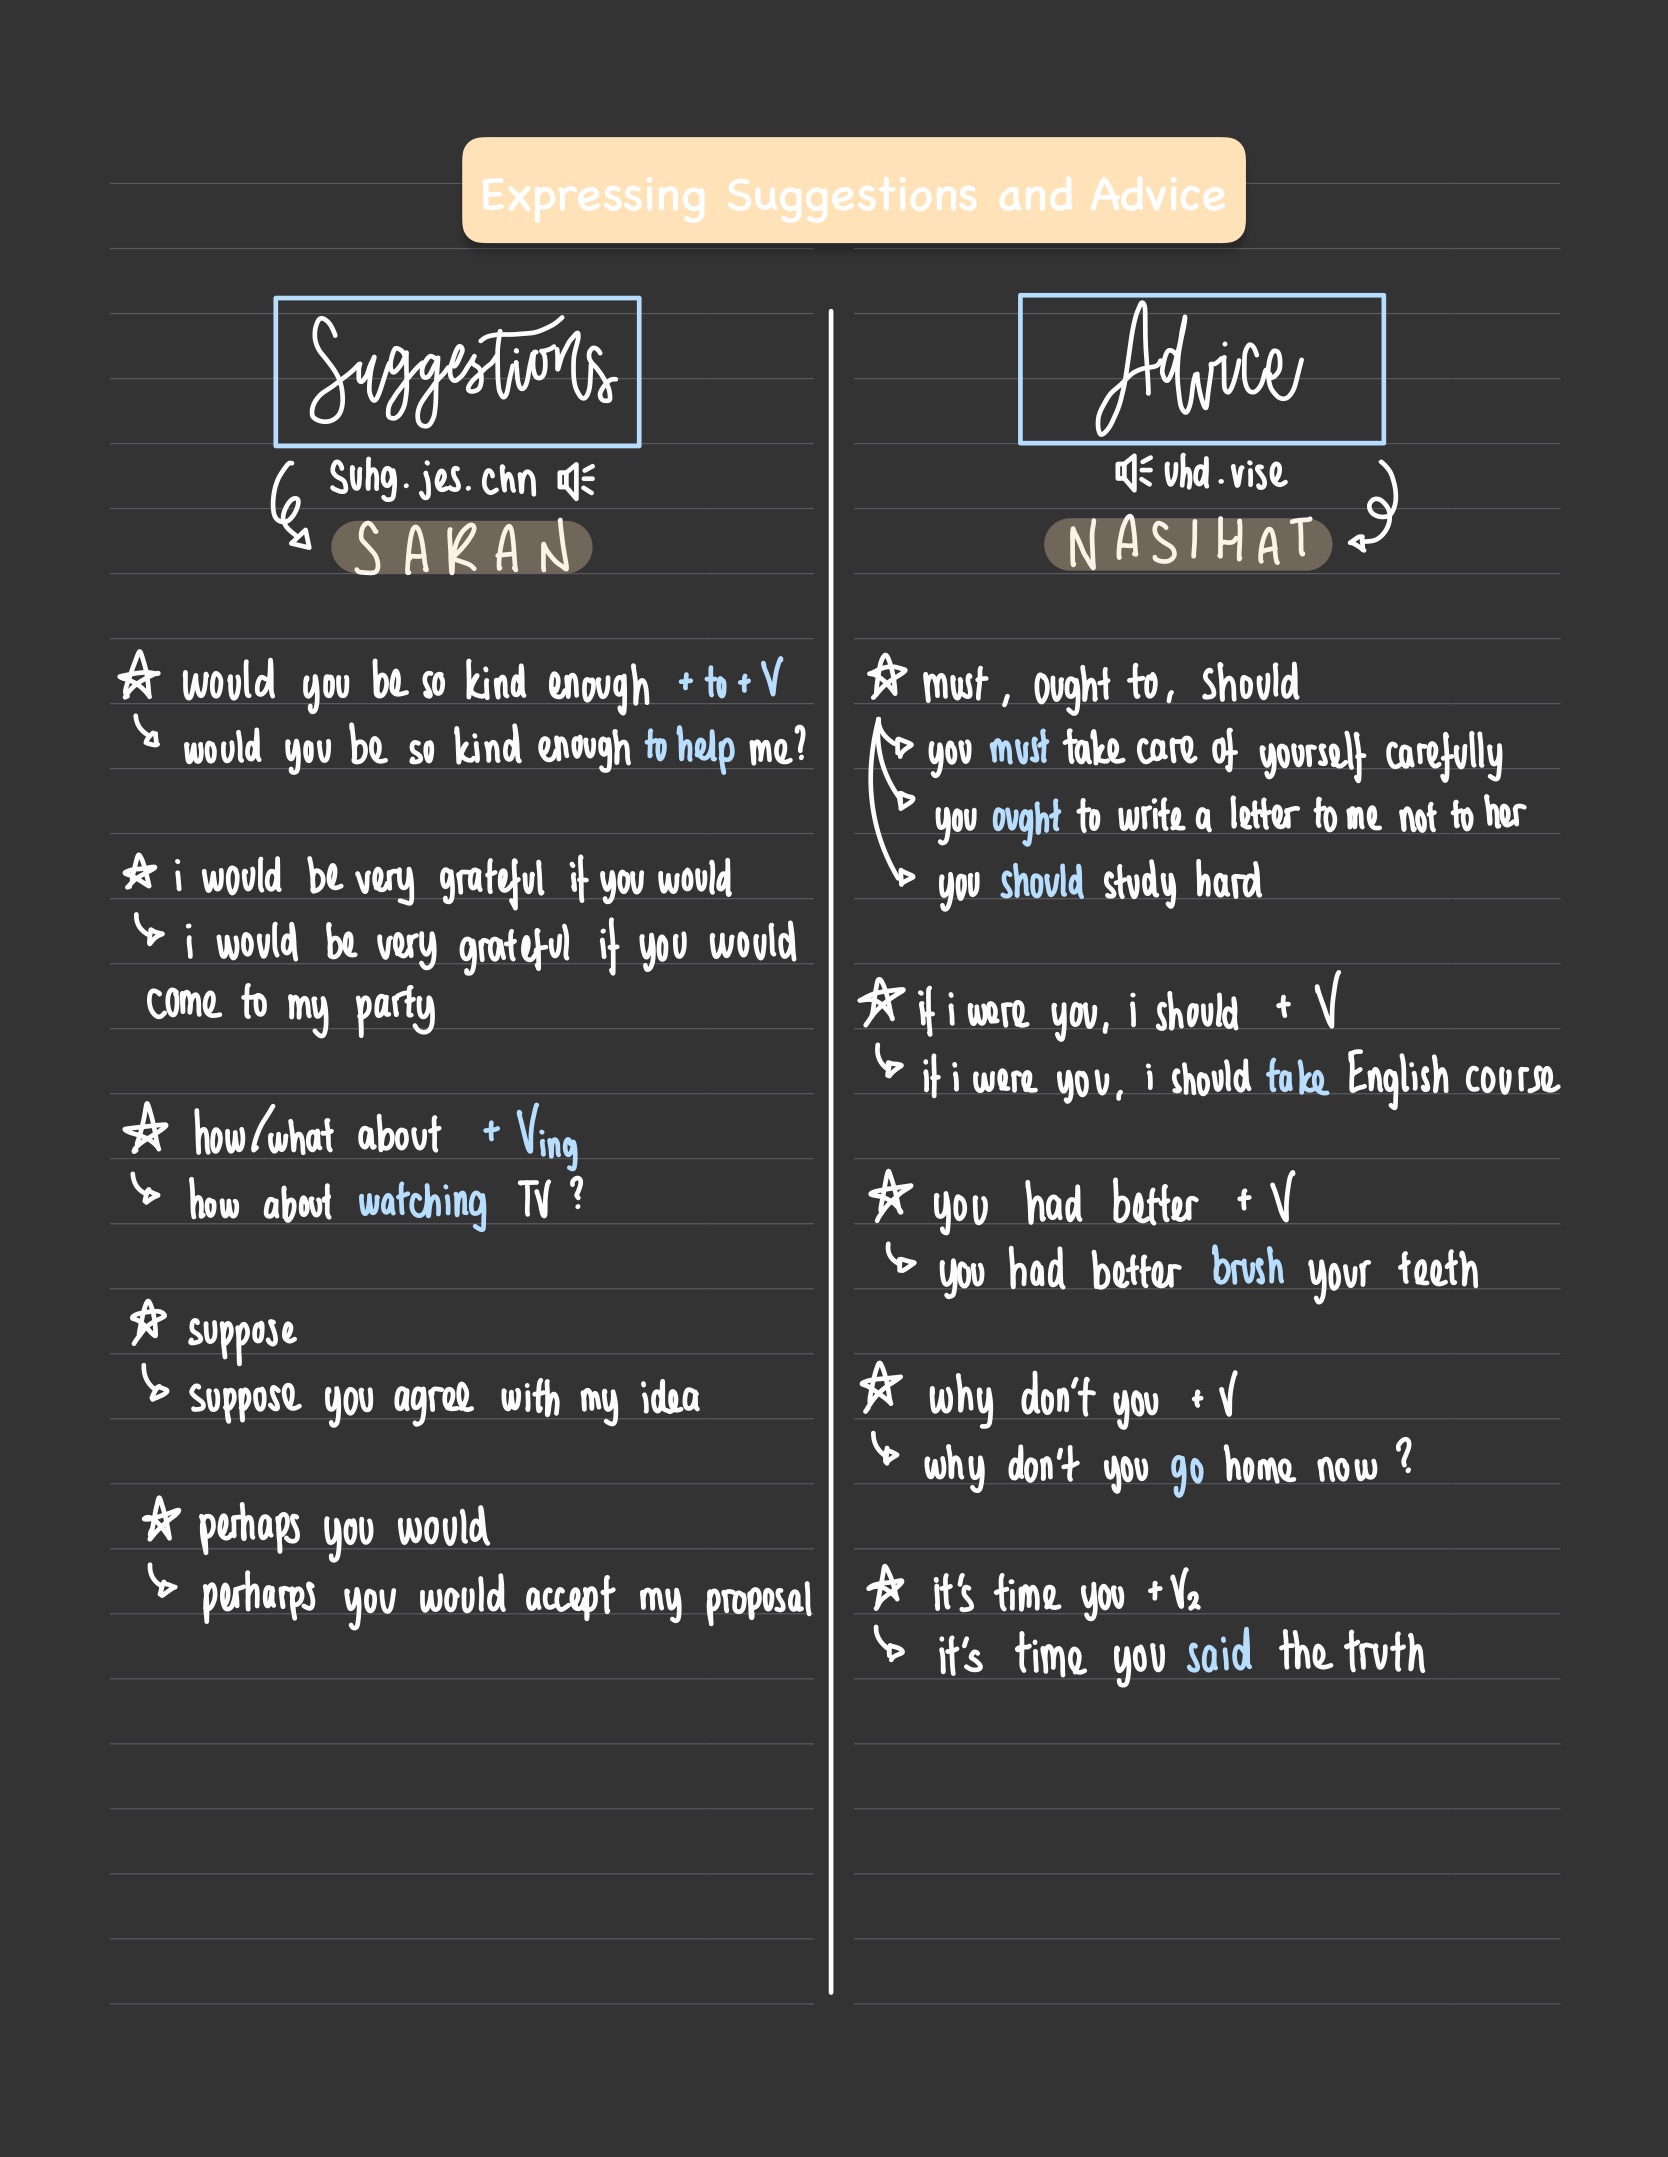 Expressing Suggestions and Advice
Suggestions
suhg.jes.chn
SARAN
would you be so kind enough + to + V
would you be so kind enough to help me?
i would be very grateful if you would
i would be very grateful if you would
come to my party
how/what about + Ving
how about watching TV ?
suppose
suppose you agree with my idea
perhaps you would
perharps you would accept my proposal
Advice
uhd.vise
NASIHAT
must, ought to, should
you must take care of yourself carefully
you ought to write a letter to me not to her
you should study hard
if i were you, i should + V
if i were you, i should take English course
you had better + V
you had better brush your teeth
why don't you + V
why don't you go home now ?
it's time you + V2
it's time you said the truth